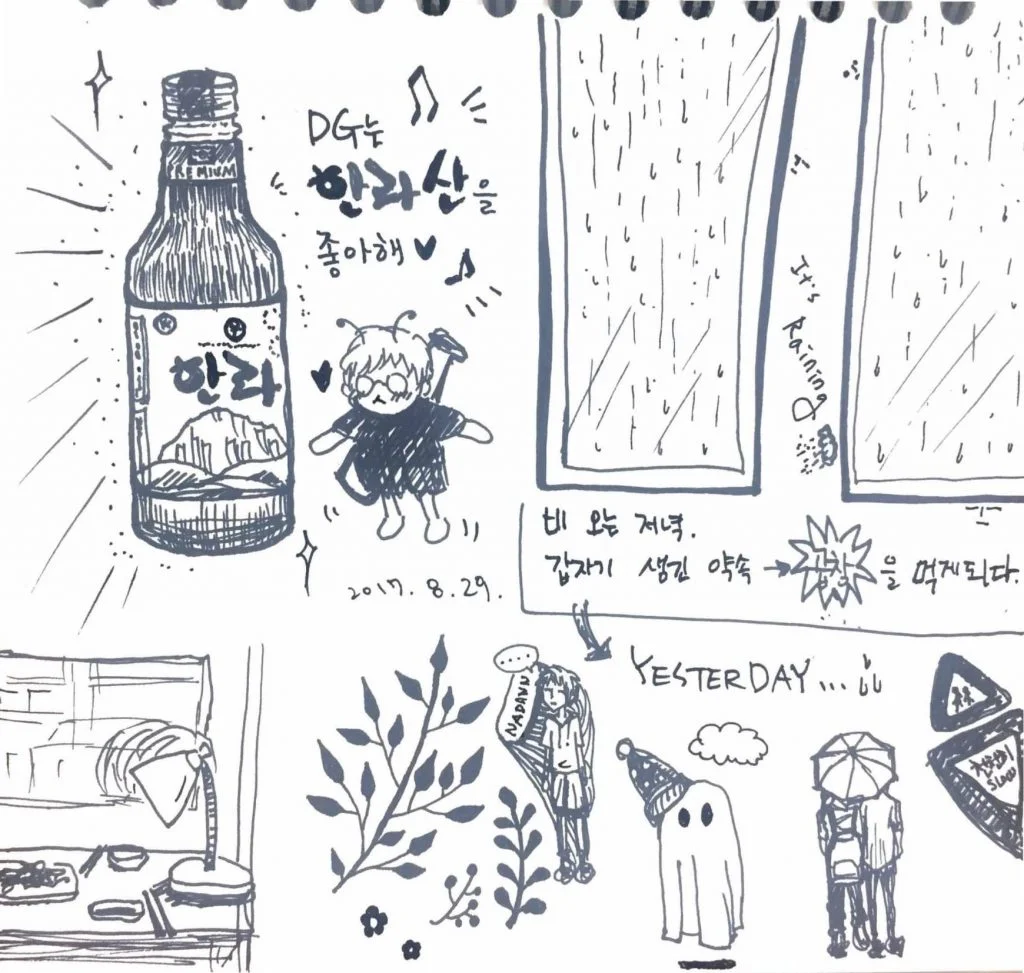 PREMIUM
한라
DG는
한라산을
좋아해
2017. 8. 29.
It's Raining
비 오는 저녁.
갑자기 생긴 약속 → 곱창을 먹게된다.
YESTERDAY...
....
NADANN
천천히
SLOW